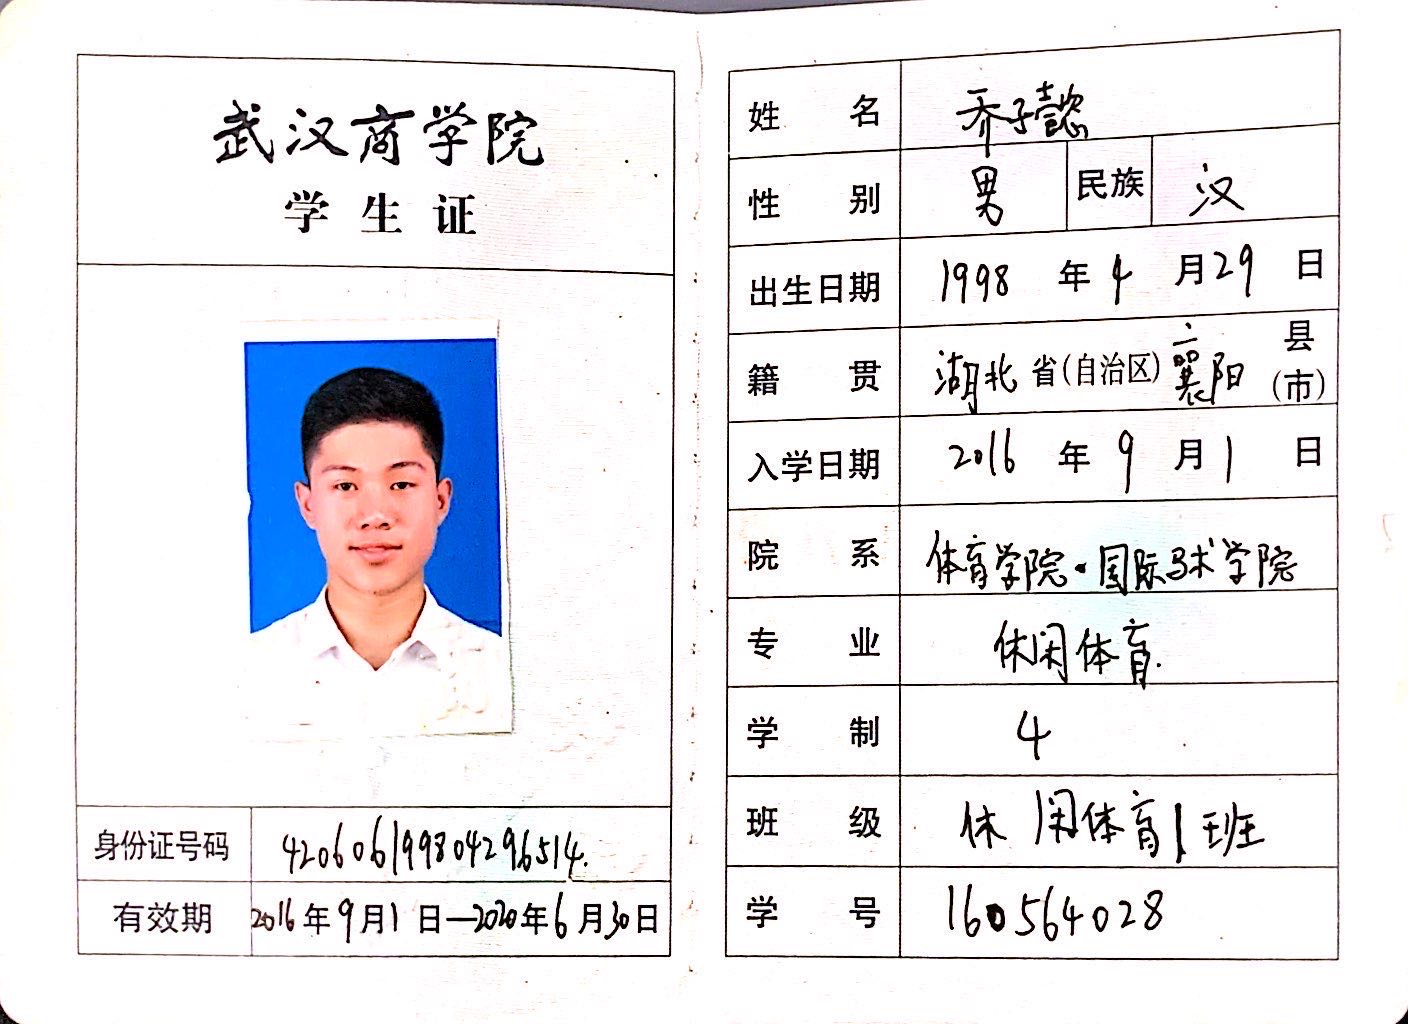 武汉商学院
学生证
身份证号码 420606199804296514.
有效期 2016年9月1日—2020年6月30日
姓名 乔子懿
性别 男 民族 汉
出生日期 1998年4月29日
籍贯 湖北省(自治区)襄阳县(市)
入学日期 2016年9月1日
院系 体育学院·国际马术学院
专业 休闲体育.
学制 4
班级 休闲体育1班
学号 160564028